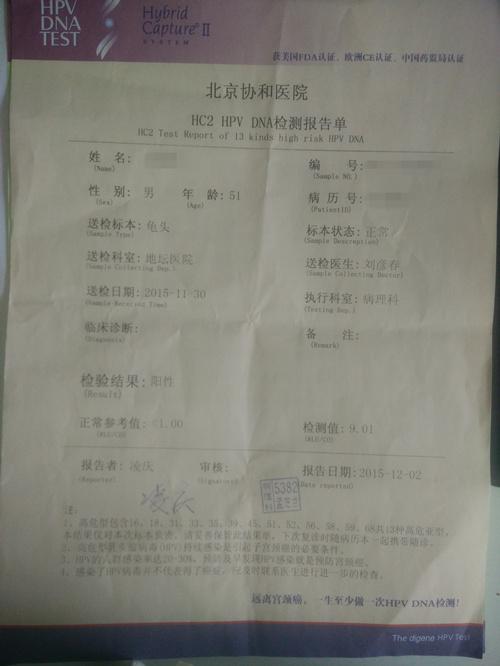 HPV
DNA
TEST
Hybrid
Capture® II
SYSTEM
获美国FDA认证、欧洲CE认证、中国药监局认证
北京协和医院
HC2 HPV DNA检测报告单
HC2 Test Report of 13 kinds high risk HPV DNA
姓 名: 编 号:
(Name) (Sample NO.)
性 别: 男 年 龄: 51 病 历 号:
(Sex) (Age) (PatientID)
送检标本: 龟头 标本状态: 正常
(Sample Type) (Sample Descreption)
送检科室: 地坛医院 送检医生: 刘彦春
(Sample Collecting Dep.) (Sample Collecting Doctor)
送检日期: 2015-11-30 执行科室: 病理科
(Sample Receiving Time) (Testing Dep.)
临床诊断: 备 注:
(Diagnosis) (Remark)
检验结果: 阳性
(Result)
正常参考值: <1.00 检测值: 9.01
(RLU/CO) (RLU/CO)
报告者: 凌庆 审核: 报告日期: 2015-12-02
(Reporter) (Signature) (Date reported)
凌庆
5382
注:
1、高危型包含16、18、31、33、35、39、45、51、52、56、58、59、68共13种高危亚型,
本结果仅对本次标本负责。请妥善保管此结果单,下次复诊时随病历本一起携带随诊。
2、高危型乳头瘤病毒(HPV)持续感染是引起子宫颈癌的必要条件。
3、HPV的人群感染率达20-30%,预防及早发现HPV感染就是预防宫颈癌。
4、感染了HPV病毒并不代表得了癌症,应及时联系医生进行进一步的检查。
远离宫颈癌,一生至少做一次HPV DNA检测!
The digene HPV Test